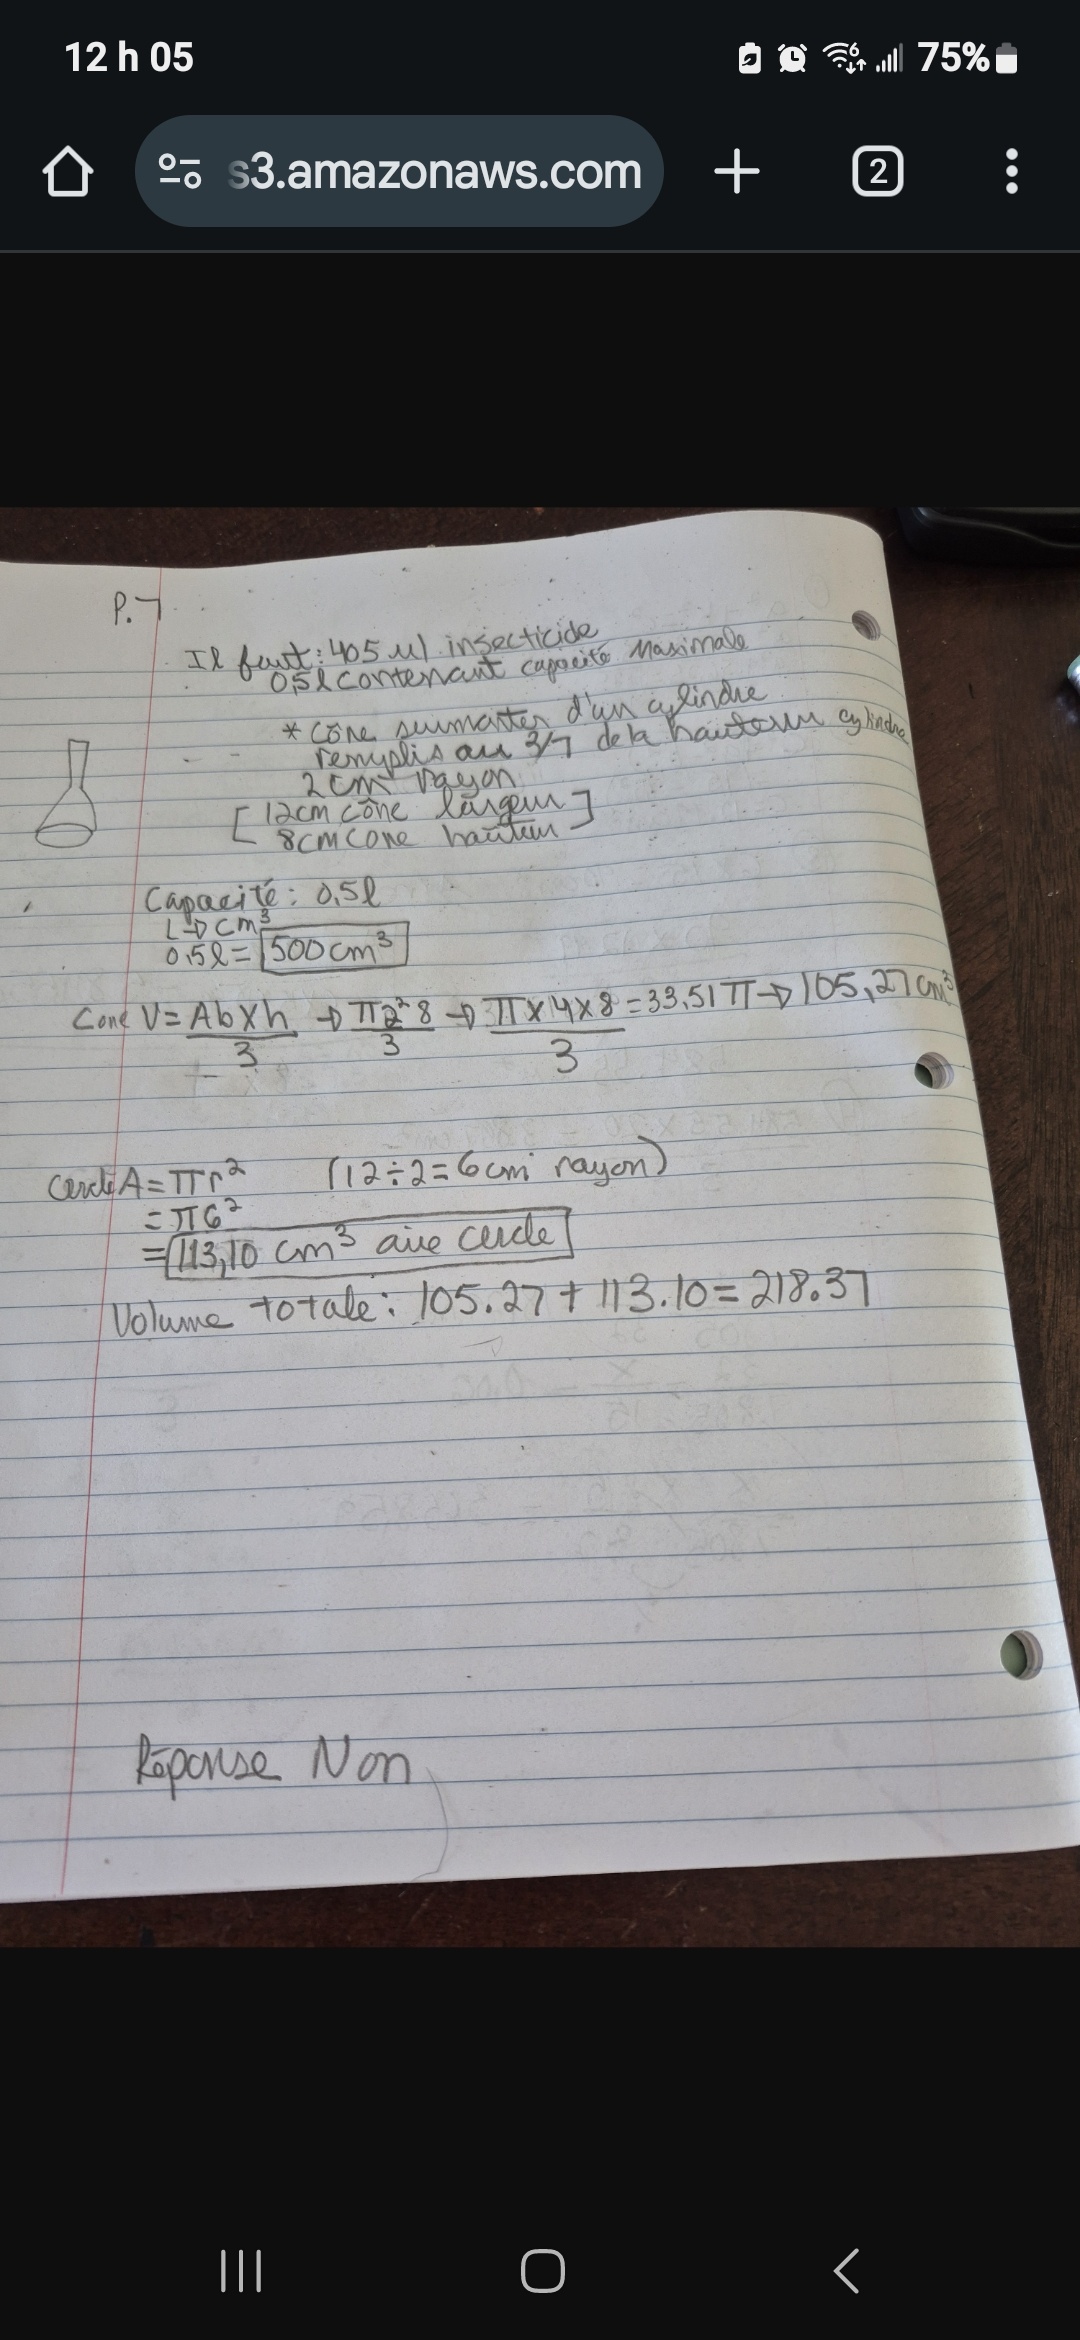 12 h 05
75%
s3.amazonaws.com
2
P.7
Il faut: 405 ml insecticide
0,5l contenant capacité Maximale
* Cône surmonter d'un cylindre
remplis au 3/7 de la hauteur cylindre
2cm rayon
[12cm cône largeur]
8cm cone hauteur
Capacité: 0,5l
L→cm³
0,5l= 500cm³
Cone V = Abxh/3 → π2²8/3 → πx4x8/3 = 33,51π → 105,27cm³
Cercle A = πr² (12÷2=6cm rayon)
= π6²
= 113,10 cm³ aire cercle
Volume totale: 105.27 + 113.10 = 218.37
Réponse Non